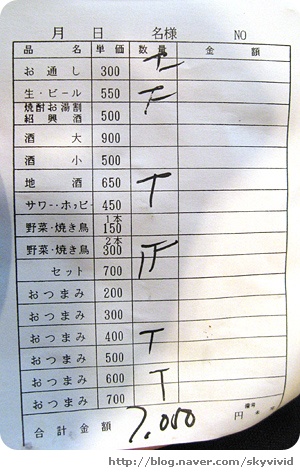 月 日 名様 NO
品名 単価 数量 金額
お通し 300
生・ビール 550
焼酎お湯割
紹興酒 500
酒 大 900
酒 小 500
地酒 650
サワー・ホッピー 450
野菜・焼き鳥 1本 150
野菜・焼き鳥 2本 300
セット 700
おつまみ 200
おつまみ 300
おつまみ 400
おつまみ 500
おつまみ 600
おつまみ 700
合計金額 7,000 円
http://blog.naver.com/skyvivid